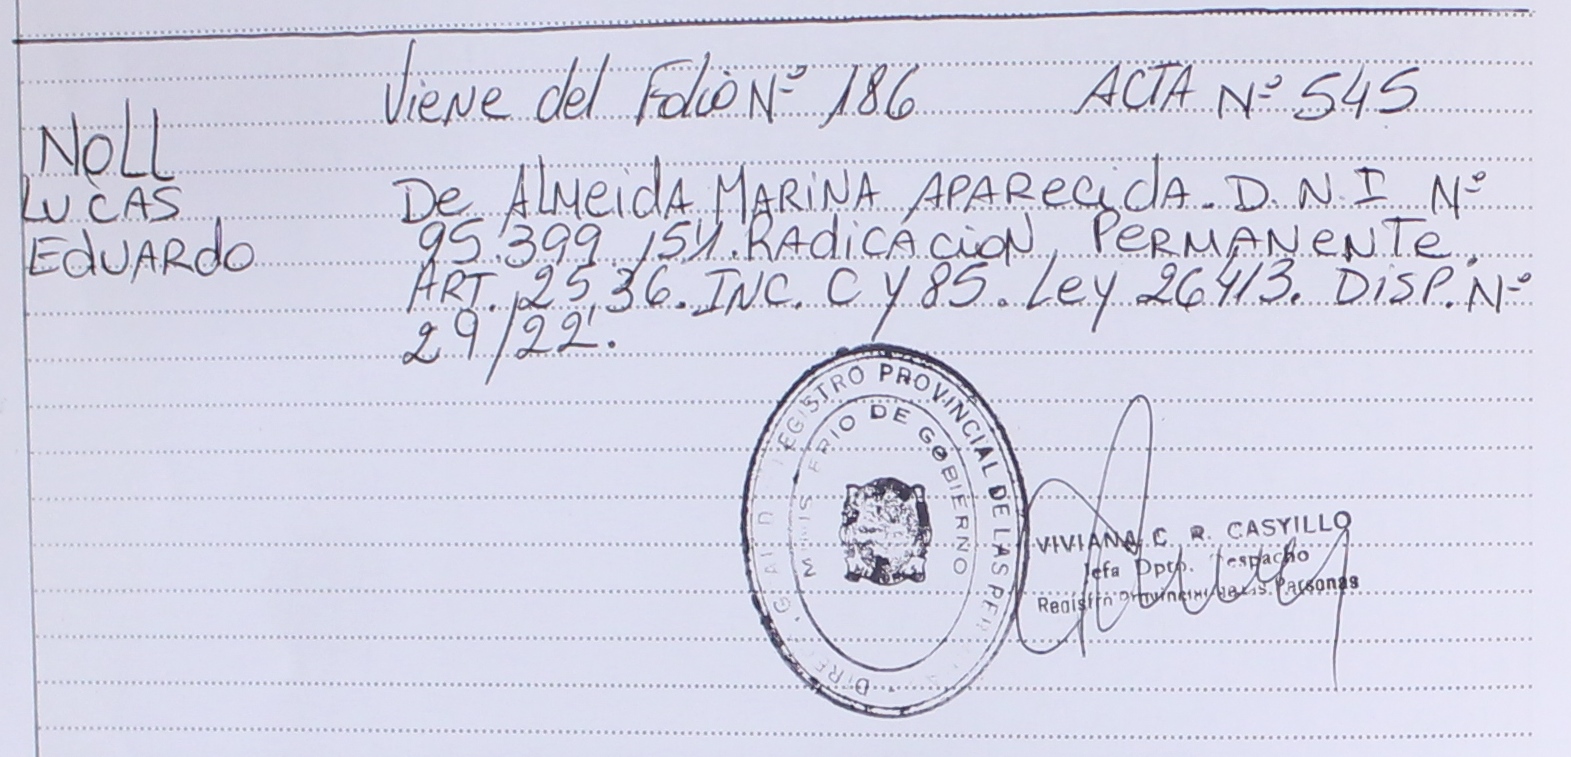 Viene del Folio Nº 186 ACTA Nº 545
NOLL
LUCAS
EDUARDO
De ALMeidA MARiNA APARecidA. D.N.I Nº
95.399.154. RAdicACioN PeRMANeNTe.
ART. 25, 36. INC. C Y 85. Ley 26413. DiSP. Nº
29/22.
REGISTRO PROVINCIAL DE LAS PER
MINISTERIO DE GOBIERNO
VIVIANA C. R. CASYILLO
Jefa Dpto. Despacho
Registro Provincial de las Personas